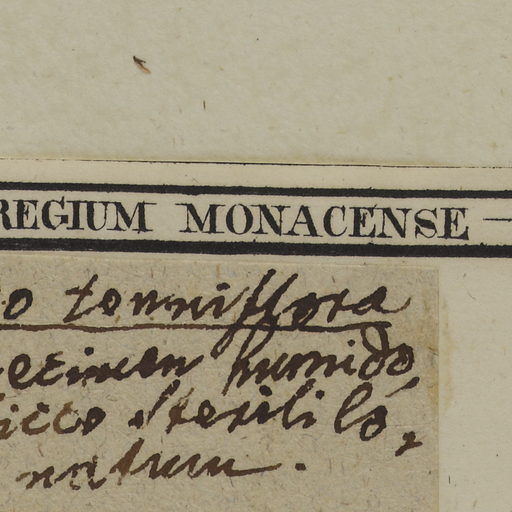 REGIUM MONACENSE
o tenuiflora
ecimen humido
icco sterili ló,
natum.